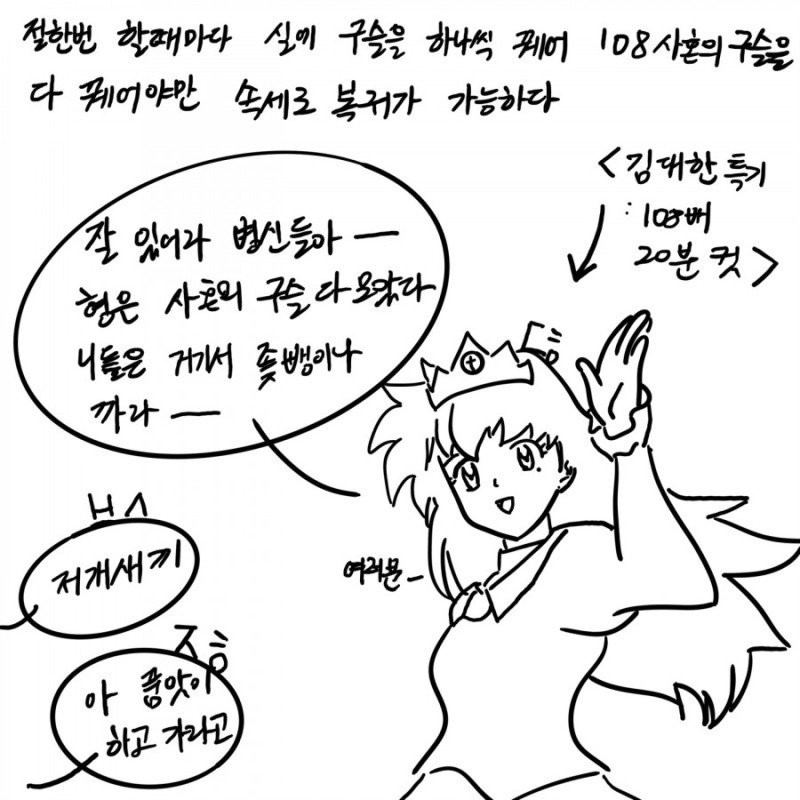 절한번 할때마다 실에 구슬을 하나씩 꿰어 108사혼의구슬을
다 꿰어야만 속세로 복귀가 가능하다
<김대한 특기
: 108배
20분 컷>
잘 있어라 병신들아 —
형은 사혼의 구슬 다 모았다
니들은 거기서 좆뺑이나
까라 —
여러분_
저개새끼
아 품앗이
하고 가라고